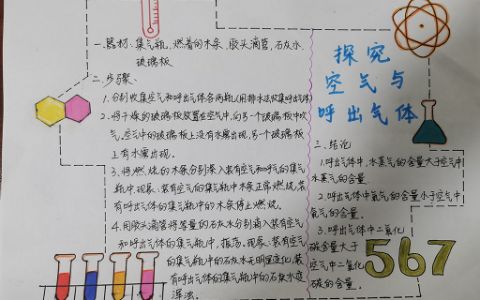 一、器材：集气瓶、燃着的木条、胶头滴管、石灰水、
玻璃板
二、步骤、
1.分别收集空气和呼出气体各两瓶(用排水法收集呼出气体)
2.将干燥的玻璃板放置空气中，向另一个玻璃板中吹
气。空气中的玻璃板上没有水雾出现，另一个玻璃板
上有水雾出现。
3.将燃烧的木条分别深入装有空气和呼气的集气
瓶中，现象：装有空气的集气瓶中木条正常燃烧，装
有呼出气体的集气瓶中的木条停止燃烧。
4.用胶头滴管将等量的石灰水分别滴入装有空气
和呼出气体的集气瓶中，振荡，现象：装有空气
的集气瓶中的石灰水无明显变化，装
有呼出气体的集气瓶中的石灰水变
浑浊
探究
空气与
呼出气体
三、结论
1.呼出气体中，水蒸气的含量大于空气中
水蒸气的含量
2.呼出气体中氧气的含量小于空气中
氧气的含量。
3.呼出气体中二氧化
碳含量大于
空气中二氧化
碳的含量。
567